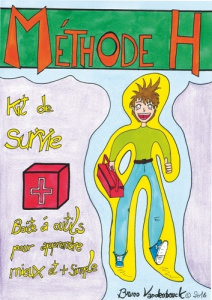 MÉTHODE H
Kit de
survie
Boîte à outils
pour apprendre
mieux et + simple
Bruno Vandenbouck © 2016